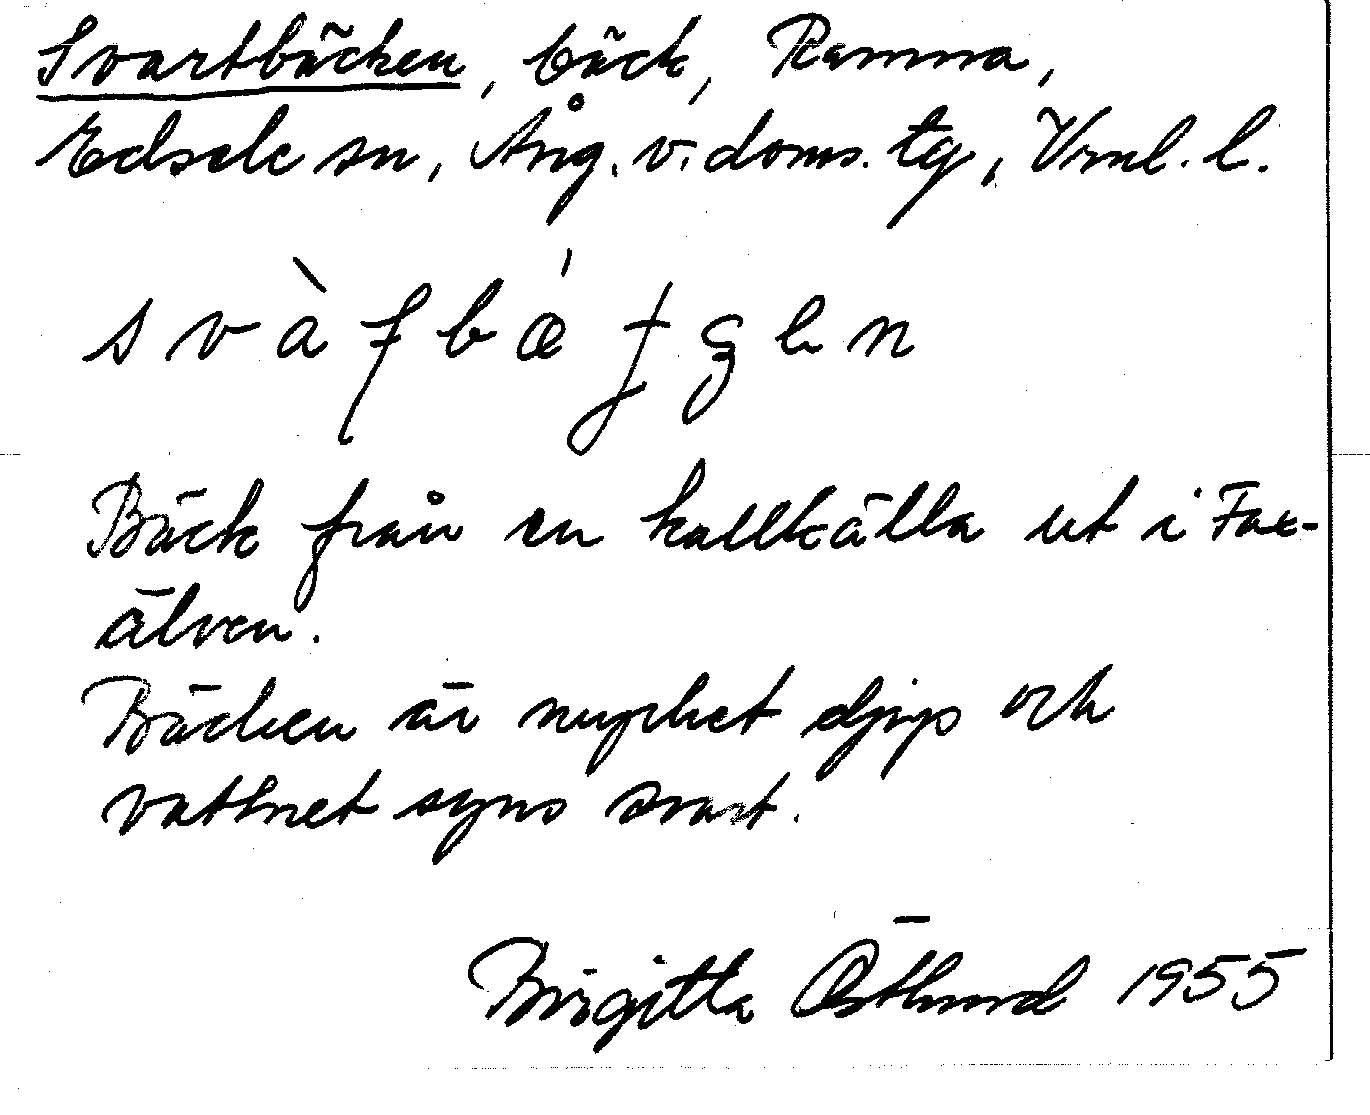 Svartbäcken, bäck, Ramna,
Edsele sn, Ång. v. doms. tg, Vrnl. l.
Bäck från en kallkälla ut i Fax-
älven.
Bäcken är mycket djup och
vattnet syns svart.
Birgitta Östlund 1955